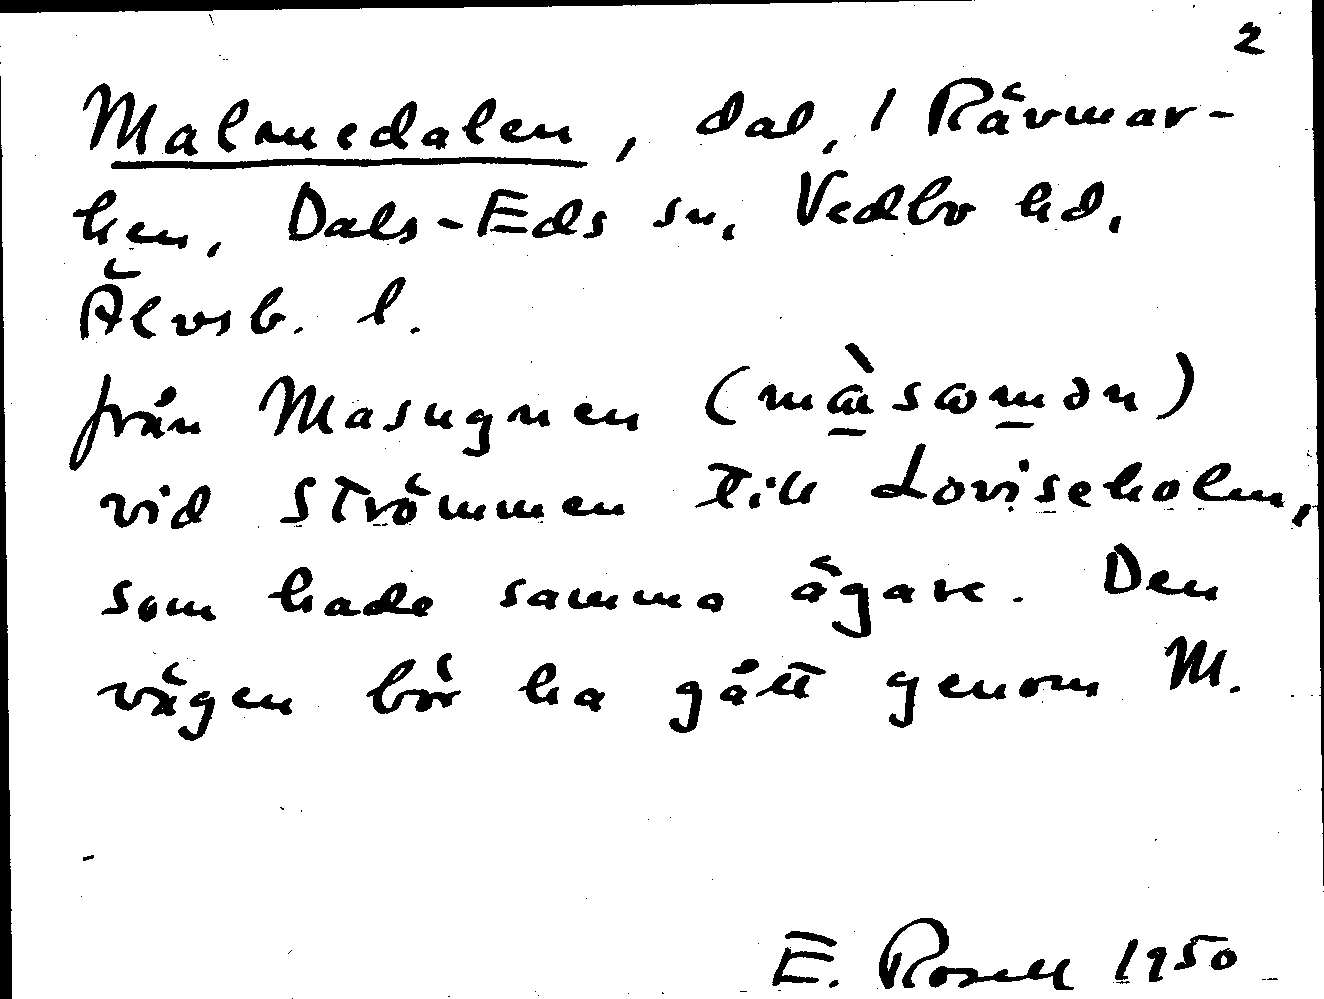 2
Malmedalen, dal, i Rävmar-
ken, Dals-Eds sn, Vedbo hd,
Älvsb. l.
från Masugnen (mà̱sωm̱ən)
vid Strömmen till Loviseholm,
som hade samma ägare. Den
vägen bör ha gått genom M.
E. Rosell 1950